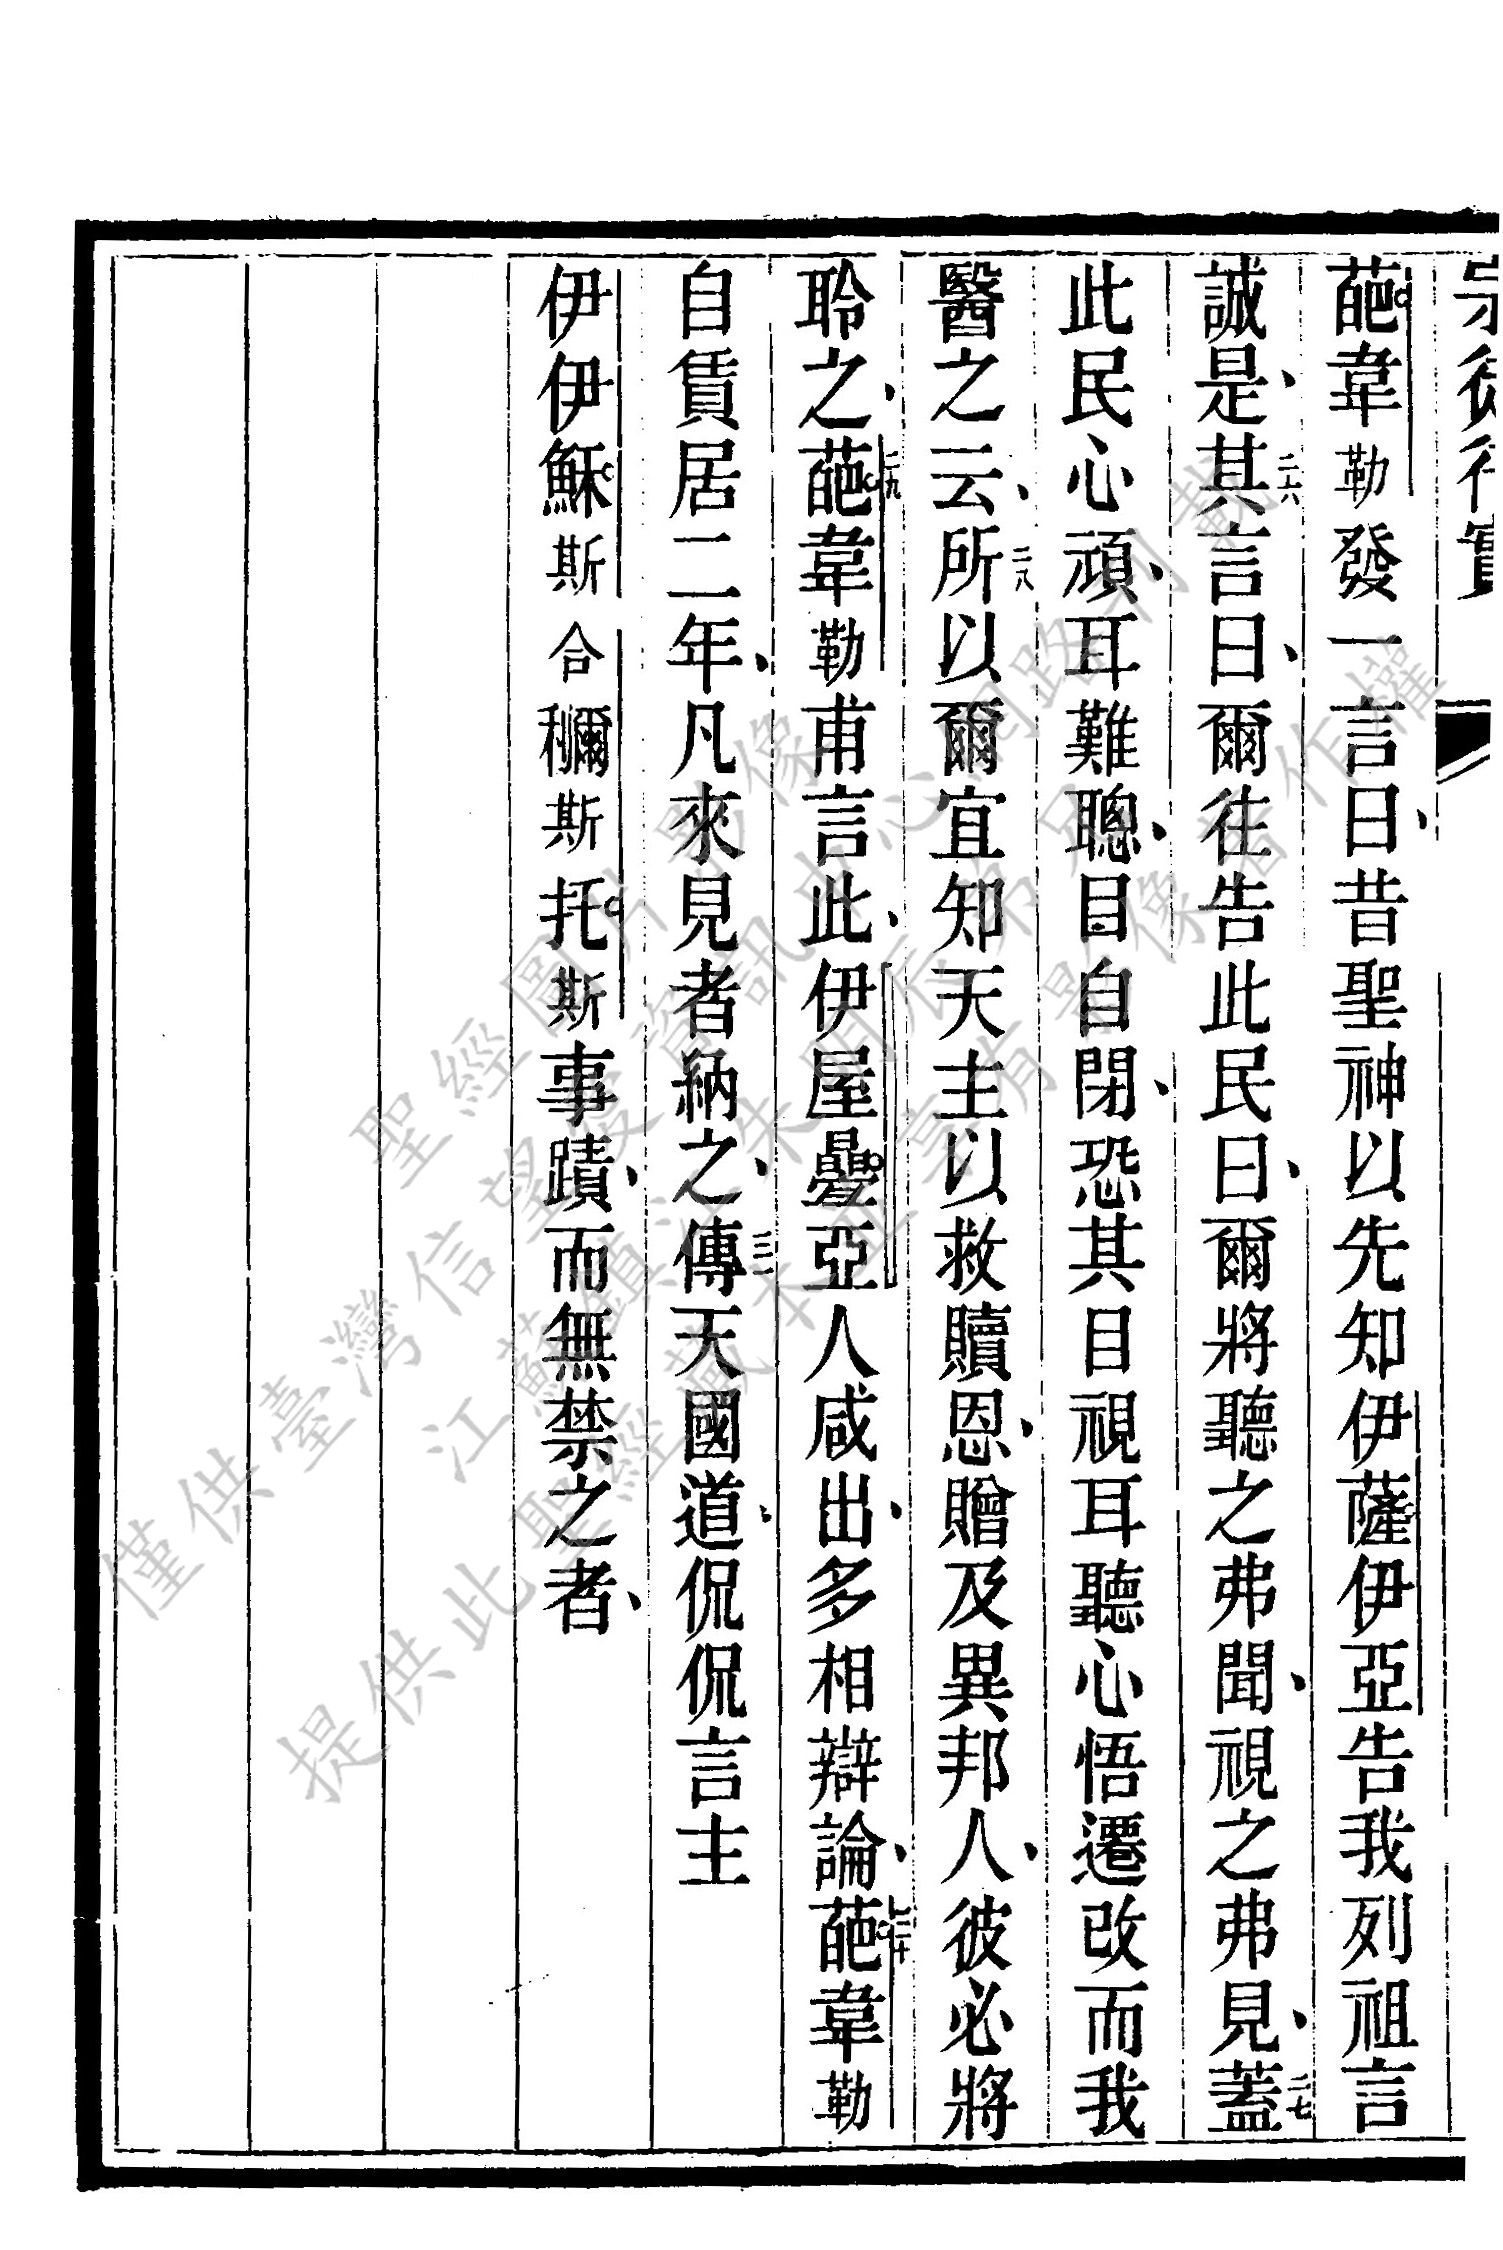 宗徒行實
葩韋勒發一言曰、昔聖神以先知伊薩伊亞告我列祖言
誠是、二六其言曰、爾往告此民曰、爾將聽之弗聞、視之弗見、二七蓋
此民心頑、耳難聰、目自閉、恐其目視耳聽心悟遷改而我
醫之云、二八所以爾宜知天主以救贖恩、贈及異邦人、彼必將
聆之、二九葩韋勒甫言此、伊屋疊亞人咸出、多相辯論、三十葩韋勒
自賃居二年、凡來見者納之、三一傳天國道、侃侃言主
伊伊穌斯合穪斯托斯事蹟、而無禁之者、
僅供臺灣信望愛資訊中心網路刊載
聖經圖片影像
江蘇鎮江朱明辰弟兄
提供此聖經藏本並享有影像著作權